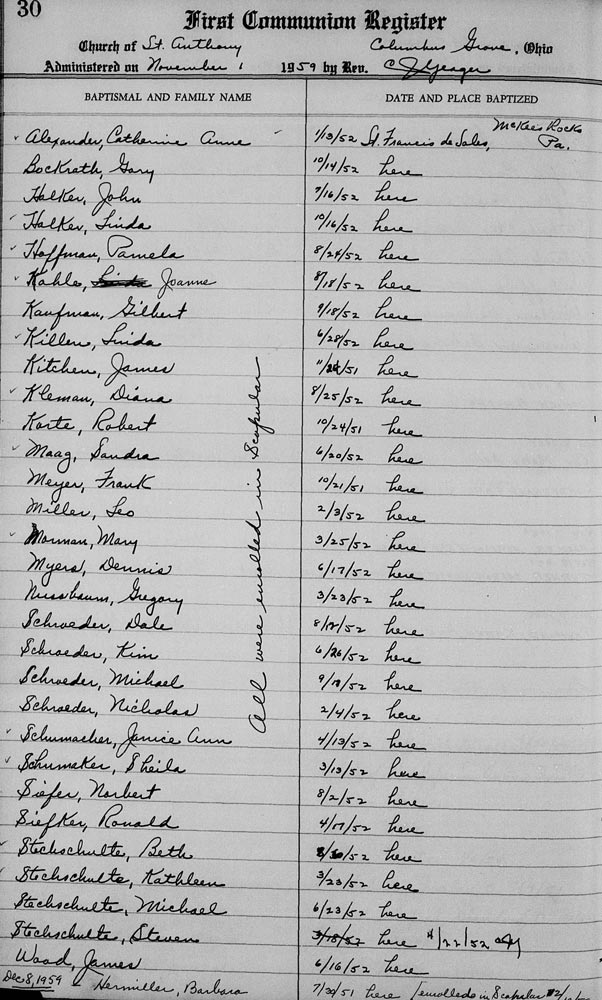 30
First Communion Register
Church of St. Anthony Columbus Grove, Ohio
Administered on November 1 1959 by Rev. C J Yeager
BAPTISMAL AND FAMILY NAME DATE AND PLACE BAPTIZED
Alexander, Catherine Anne 1/13/52 St. Francis de Sales, McKees Rocks Pa.
Bockrath, Gary 10/14/52 here
Halker, John 7/16/52 here
Halker, Linda 10/16/52 here
Hoffman, Pamela 8/24/52 here
Kahle, Linda Joanne 8/18/52 here
Kaufman, Gilbert 9/18/52 here
Killen, Linda 6/28/52 here
Kitchen, James 11/24/51 here
Kleman, Diana 8/25/52 here
Korte, Robert 10/24/51 here
Maag, Sandra 6/20/52 here
Meyer, Frank 10/21/51 here
Miller, Leo 2/3/52 here
Morman, Mary 3/25/52 here
Myers, Dennis 6/17/52 here
Nussbaum, Gregory 3/23/52 here
Schroeder, Dale here
Schroeder, Kim 6/26/52 here
Schroeder, Michael 9/18/52 here
Schroeder, Nicholas 2/4/52 here
Schumacher, Janice Ann 4/13/52 here
Schumaker, Sheila 3/13/52 here
Siefer, Norbert 8/2/52 here
Siefker, Ronald 4/17/52 here
Stechschulte, Beth 8/30/52 here
Stechschulte, Kathleen 3/23/52 here
Stechschulte, Michael 6/23/52 here
Stechschulte, Steven 3/18/52 here 4/22/52
Wood, James 6/16/52 here
Dec 8, 1959 Hermiller, Barbara 7/30/51 here (enrolled in Scapular
All were enrolled in Scapular